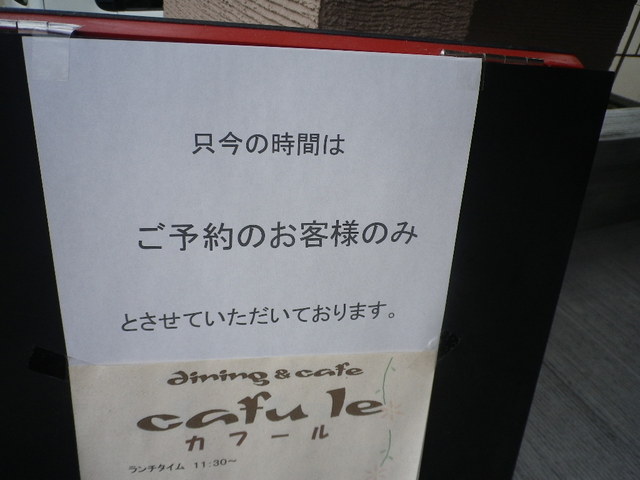 只今の時間は
ご予約のお客様のみ
とさせていただいております。
dining & cafe
cafu le
カフール
ランチタイム 11:30～